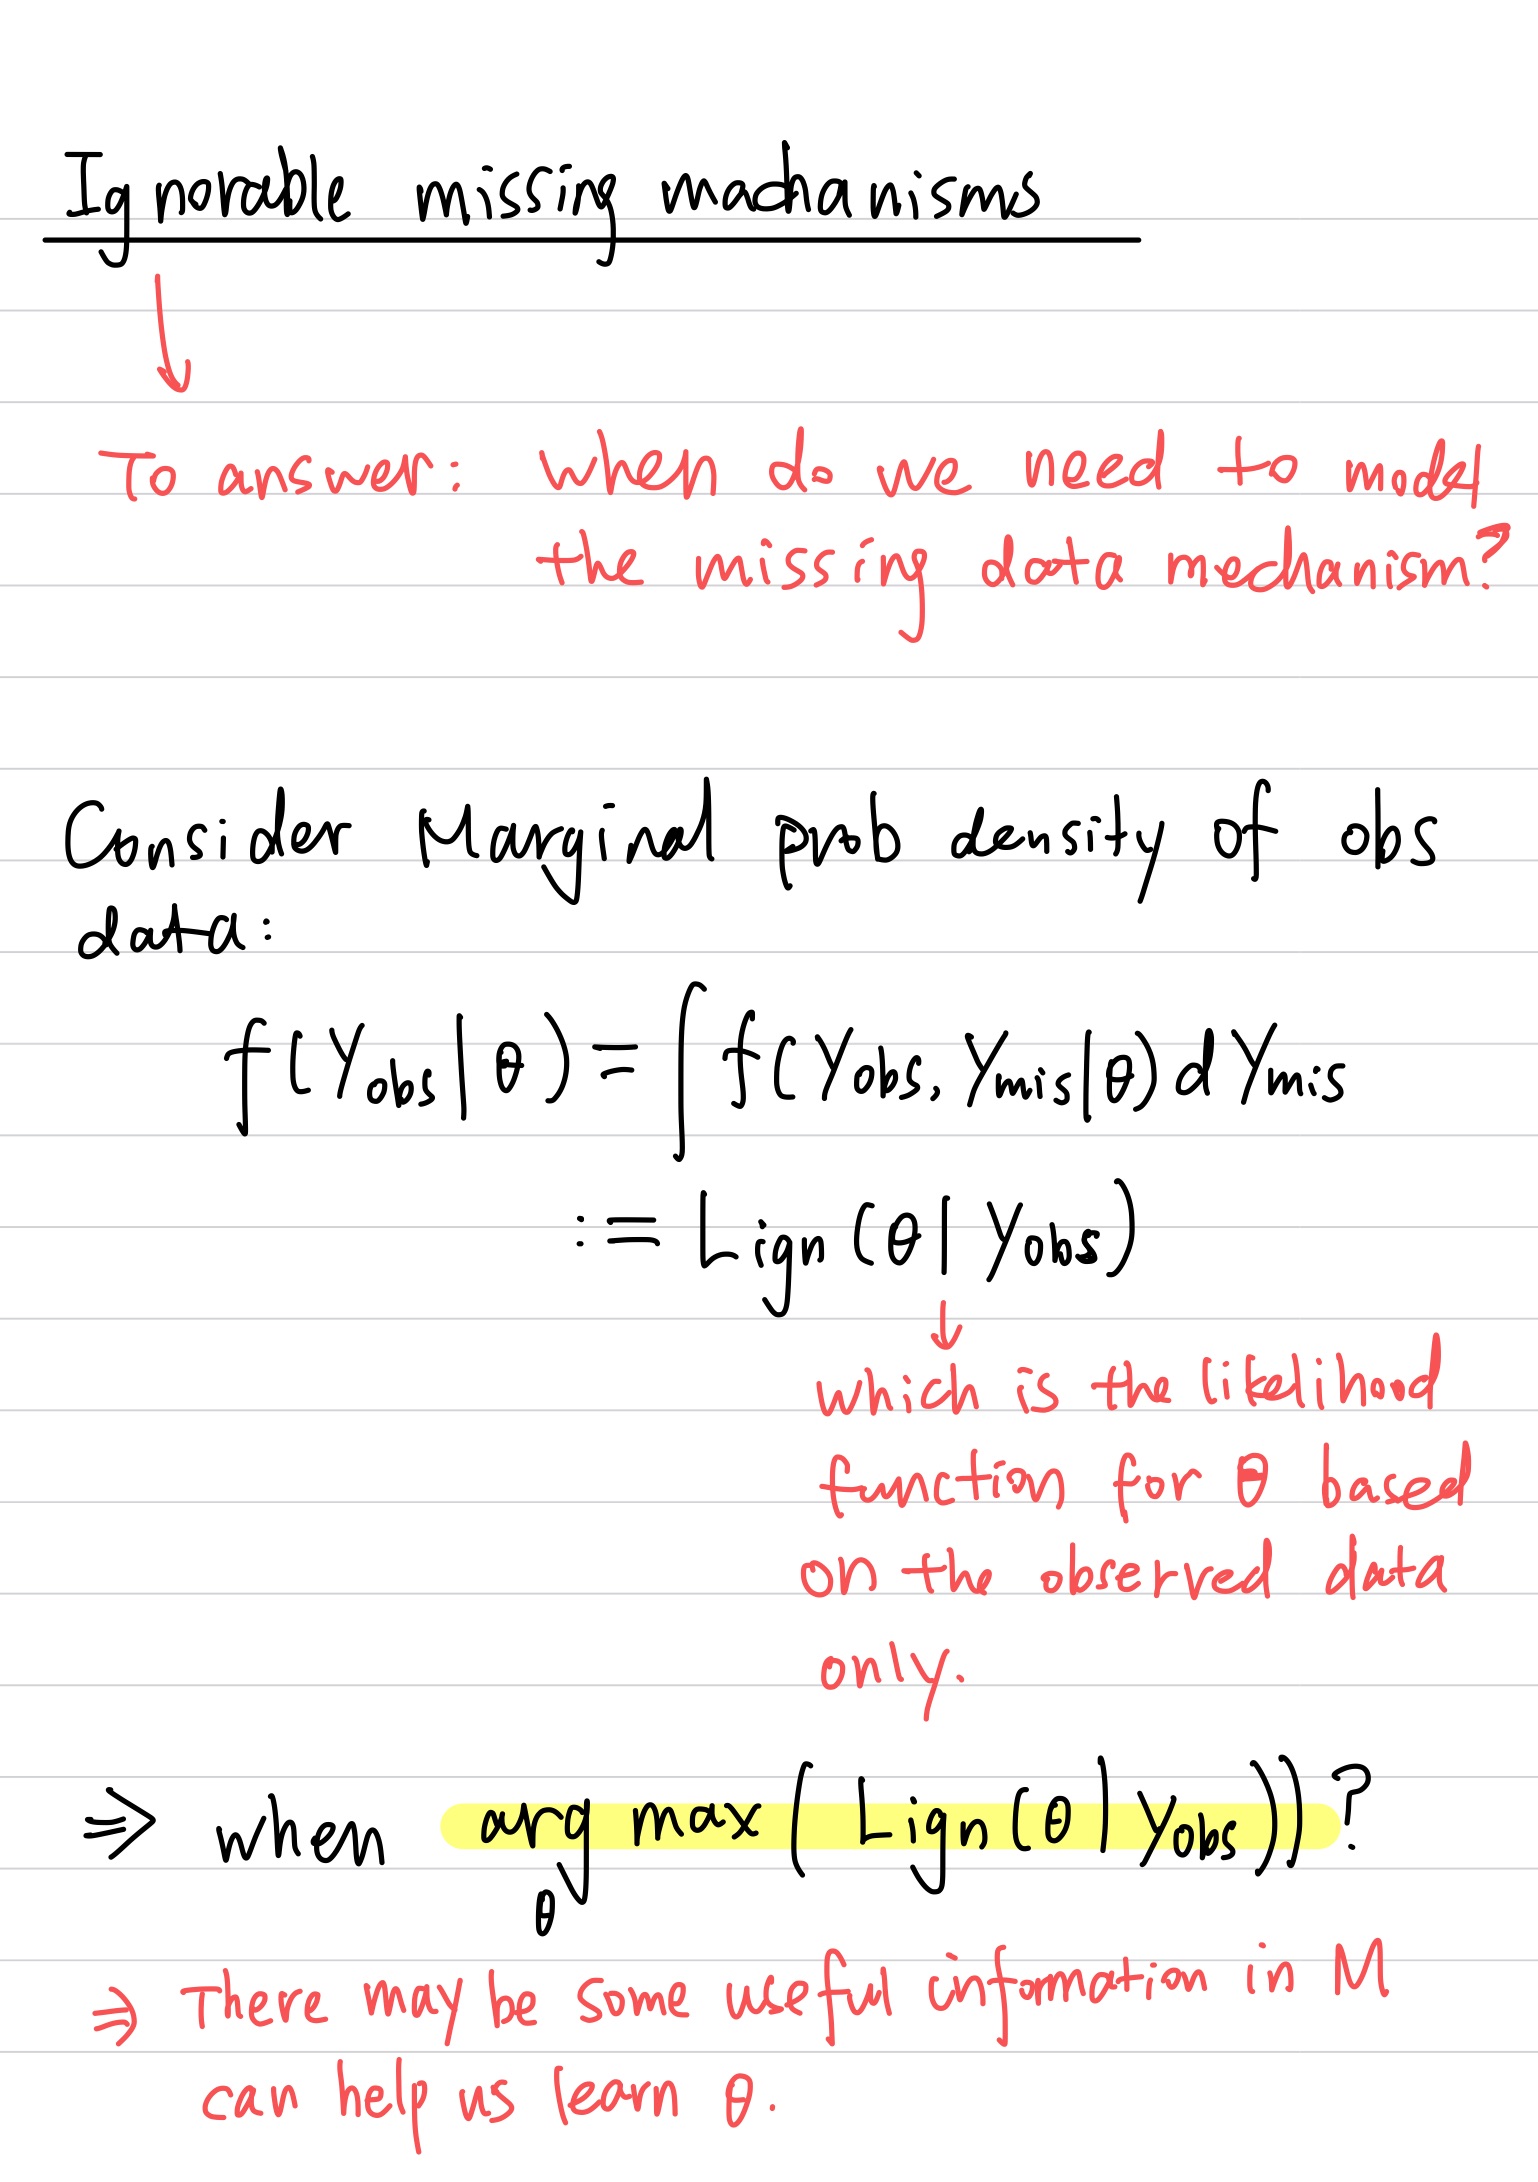 Ignorable missing machanisms
To answer: when do we need to model
the missing data mechanism?
Consider Marginal prob density of obs
data:
f(Yobs|θ) = ∫ f(Yobs, Ymis|θ) d Ymis
:= Lign (θ| Yobs)
↓
which is the likelihood
function for θ based
on the observed data
only.
⇒ when arg max ( Lign (θ| Yobs))?
θ
⇒ There may be some useful information in M
can help us learn θ.